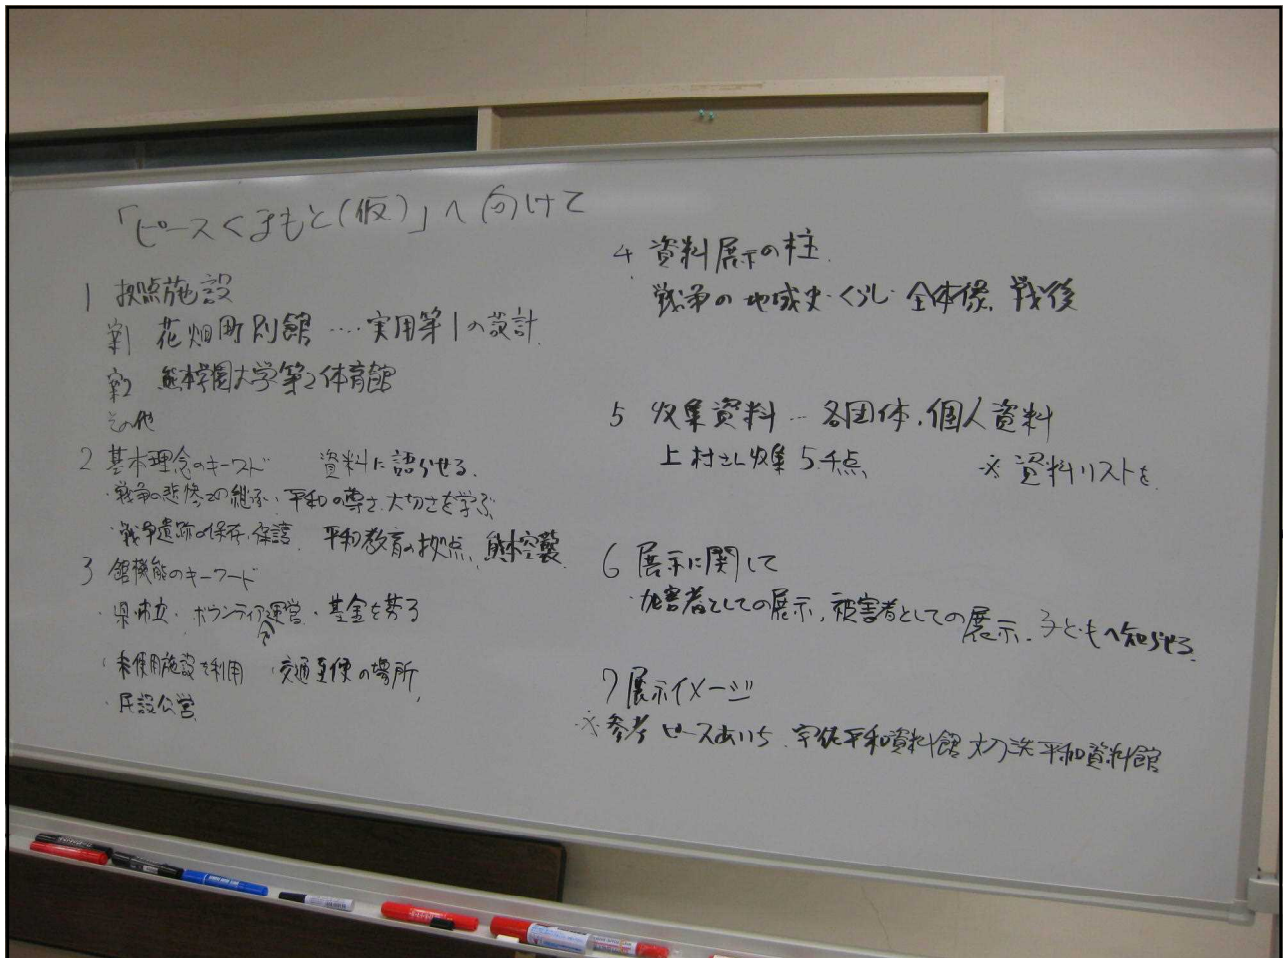 「ピースくまもと(仮)」へ向けて
1 拠点施設
案1 花畑町別館 …実用第1の設計
案2 熊本学園大学第2体育館
その他
2 基本理念のキーワード 資料に語らせる.
・戦争の悲惨さの継承、平和の尊さ、大切さを学ぶ
・戦争遺跡の保存、保護、平和教育の拠点、熊本空襲
3 館機能のキーワード
・県市立・ボランティア運営・基金を募る
・未使用施設を利用 ・交通至便の場所
・民設公営
4 資料展示の柱
戦争の地域史・くらし・全体像、戦後
5 収集資料…各団体、個人資料
上村さん収集 5千点 ※資料リストを
6 展示に関して
・加害者としての展示、被害者としての展示、子どもへ知らせる
7 展示イメージ
※参考 ピースあいち、宇佐平和資料館 大刀洗平和資料館